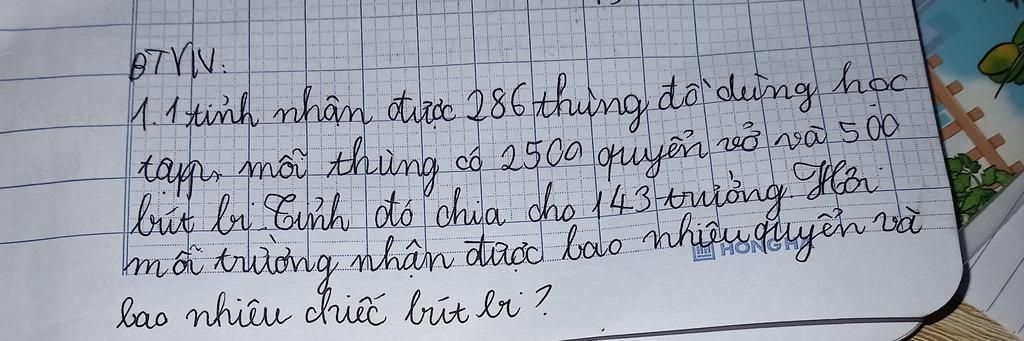 BTVN:
1. 1 tỉnh nhận được 286 thùng đồ dùng học
tập, mỗi thùng có 2500 quyển vở và 500
bút bi. Tỉnh đó chia cho 143 trường. Hỏi
mỗi trường nhận được bao nhiêu quyển và
HONG HA
bao nhiêu chiếc bút bi?